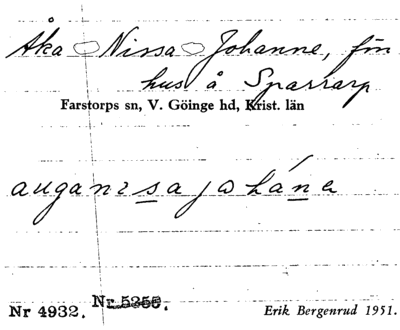 Åka Nissa Johanne, fön
hus å Sparrarp
Farstorps sn, V. Göinge hd, Krist. län
auganisa joháne
Nr 4932. Nr 5255.
Erik Bergenrud 1951.